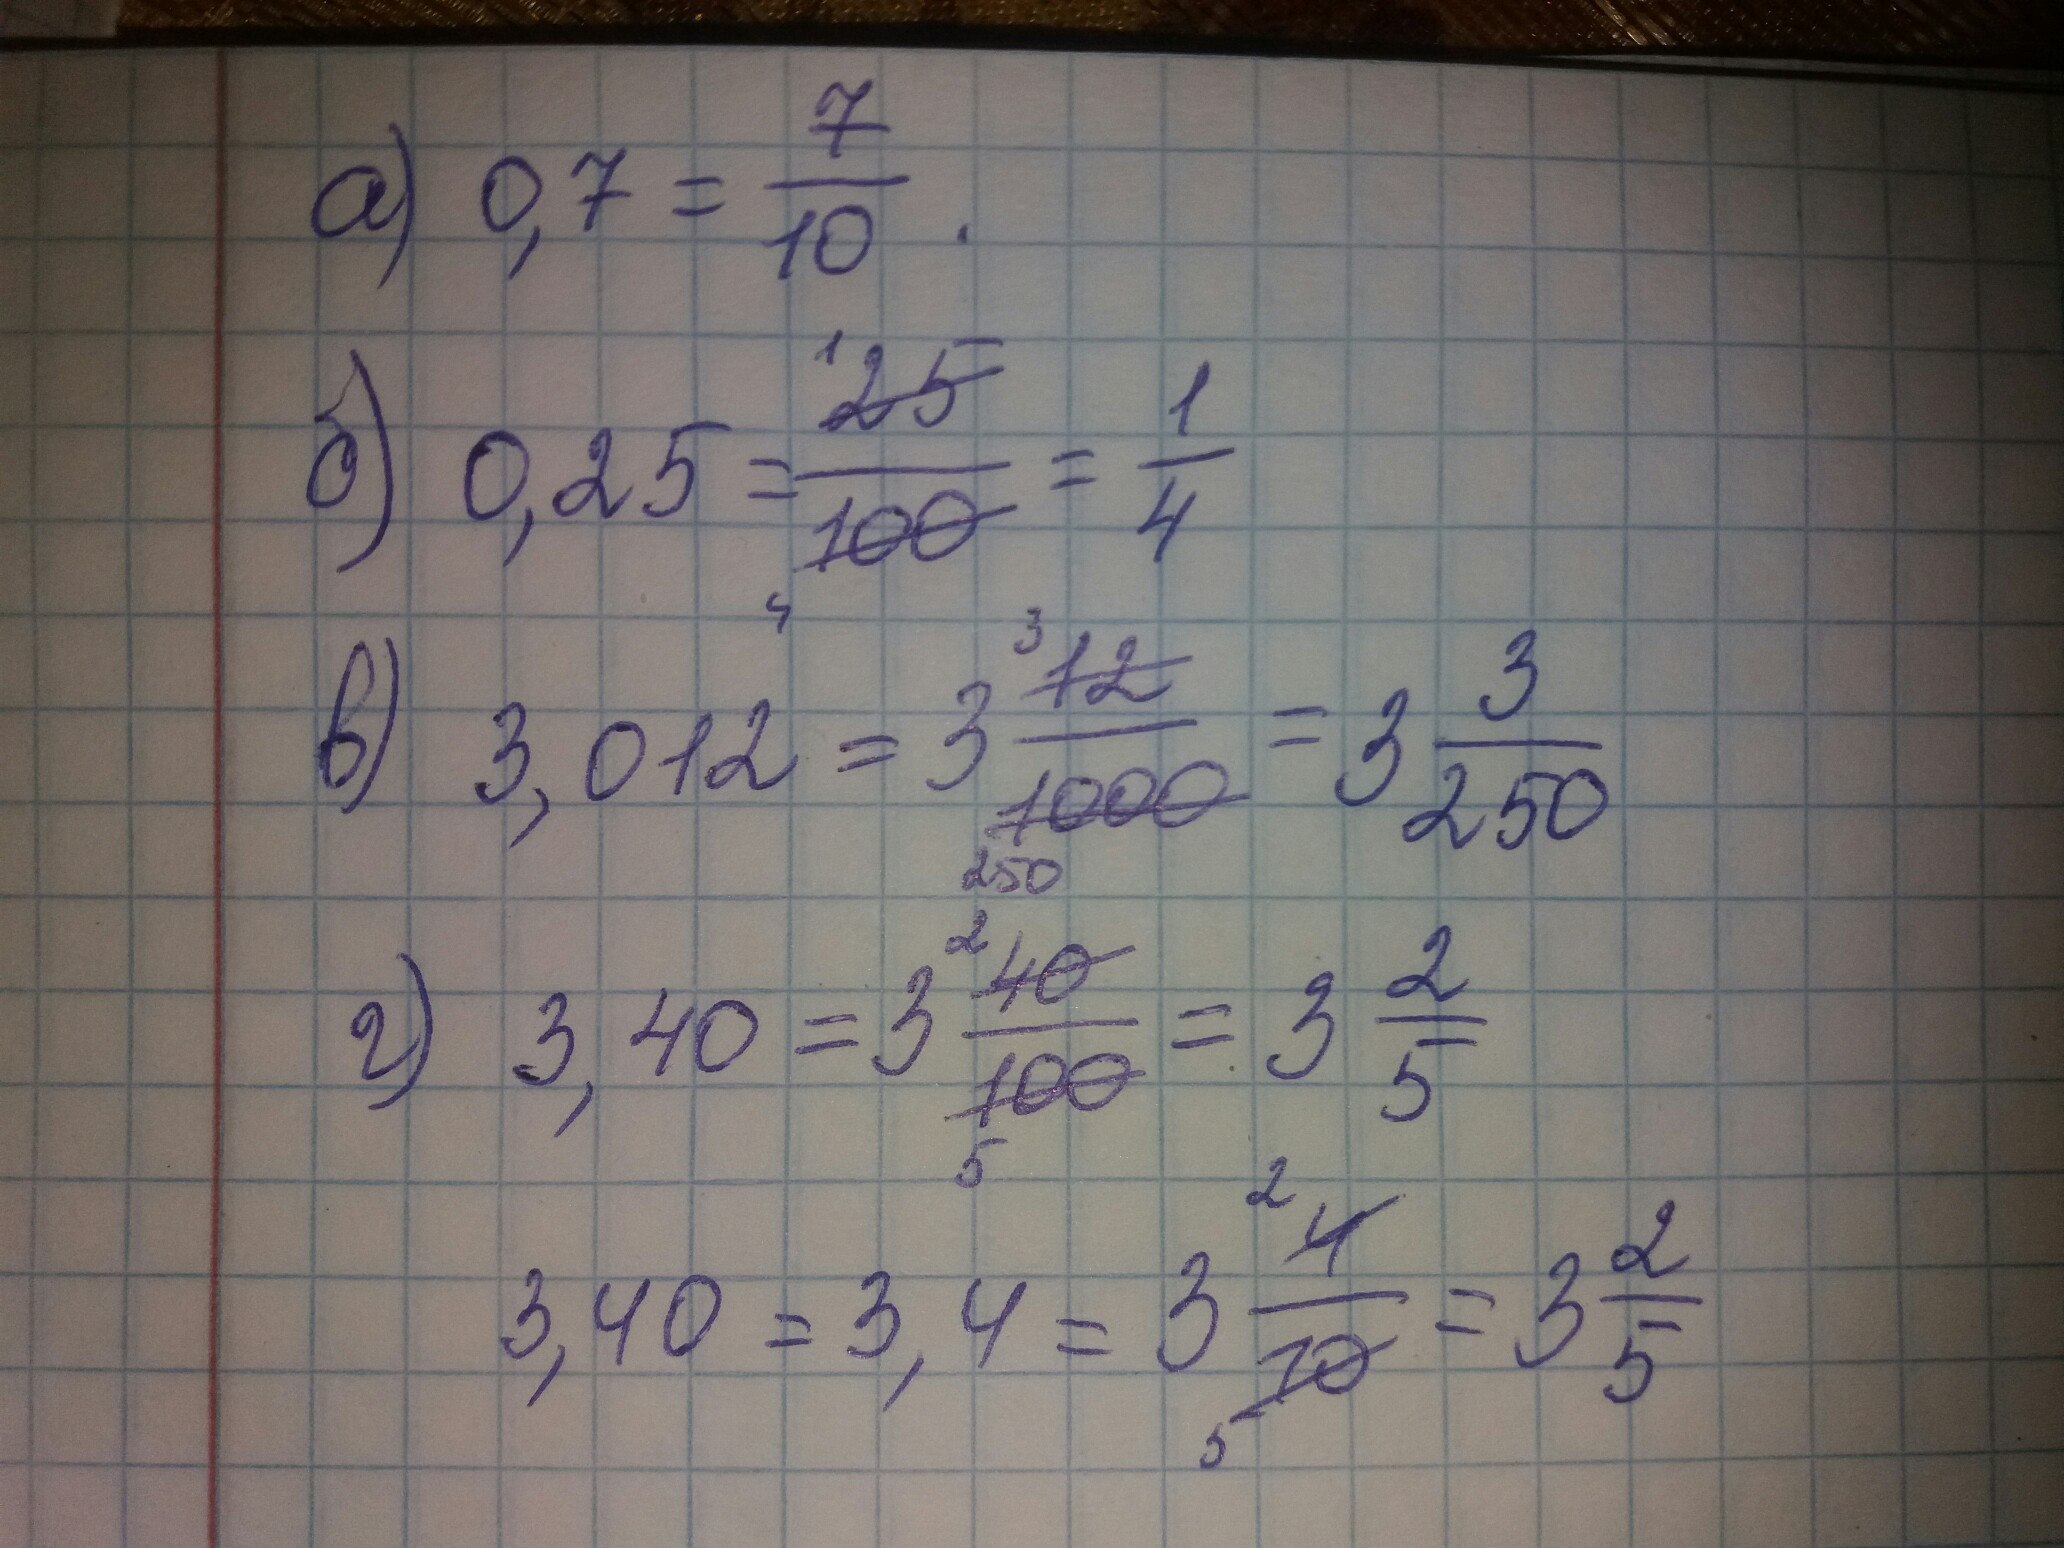 а) 0,7 = 7/10.
б) 0,25 = ¹25/100₄ = 1/4
в) 3,012 = 3 ³12/1000₂₅₀ = 3 3/250
г) 3,40 = 3 ²40/100₅ = 3 2/5
3,40 = 3,4 = 3 ²4/10₅ = 3 2/5